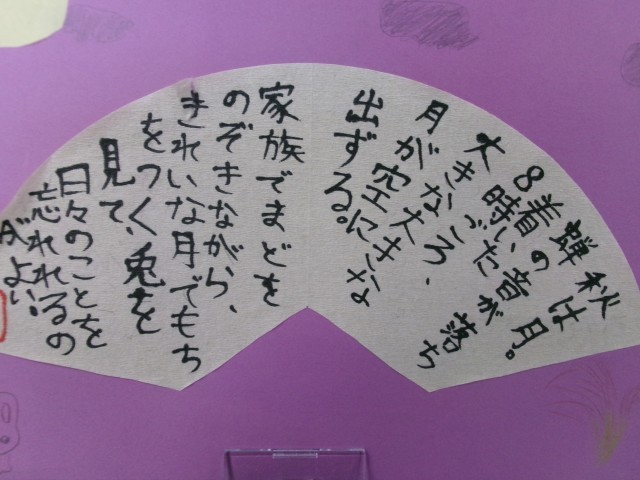 秋は月。
蝉の音が落ち
着いた
8時ころ、大きな
月が空に
出ずる。
家族でまどを
のぞきながら、
きれいな月でもち
をつく、兎を
見て、
日々のことを
忘れれるの
がよい。